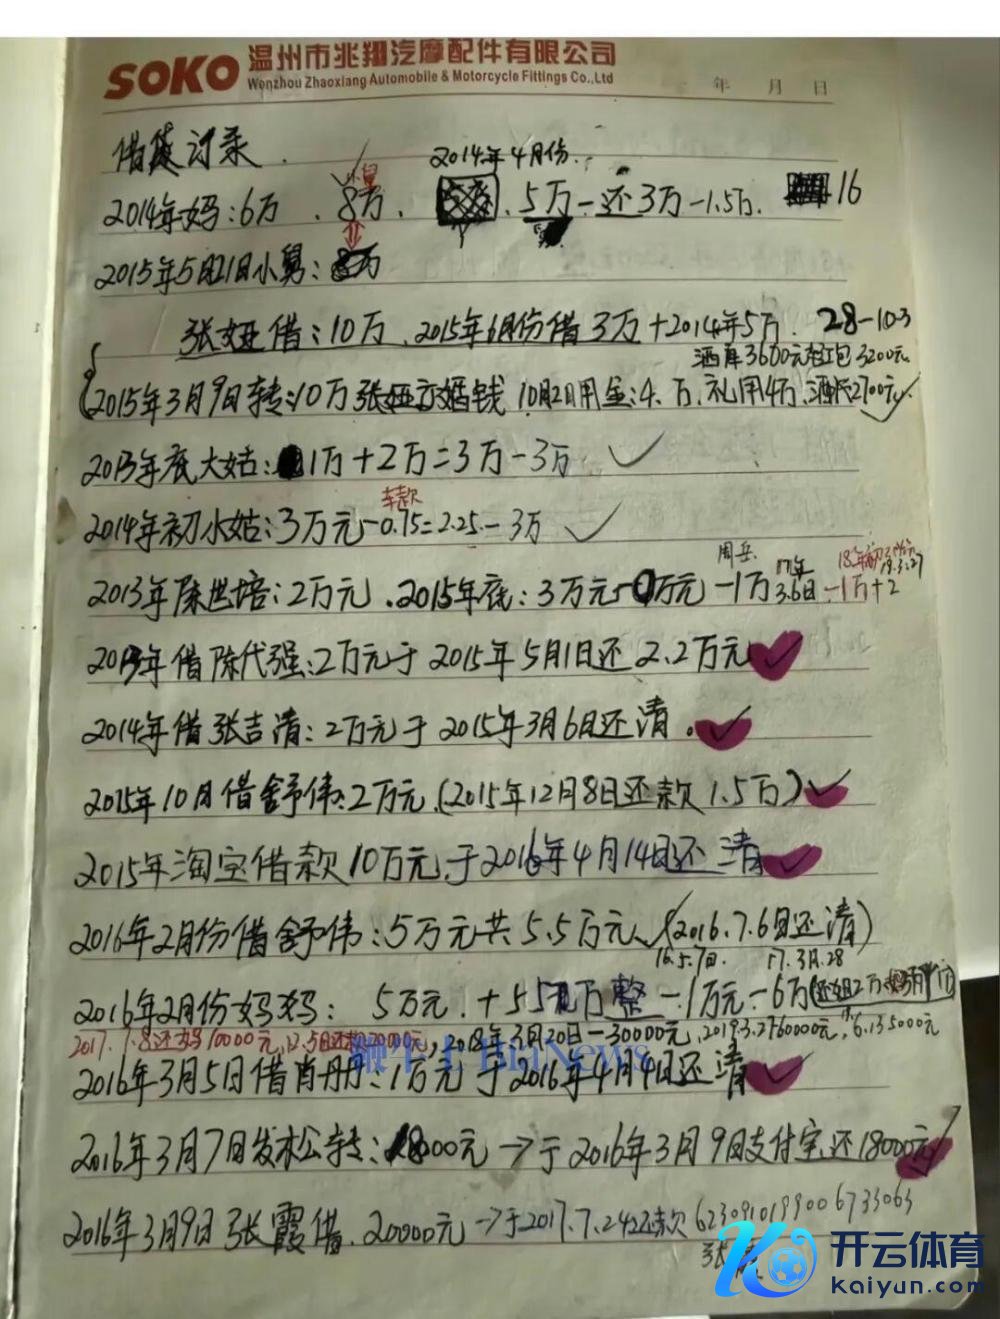 SOKO 温州市兆翔汽摩配件有限公司
Wenzhou Zhaoxiang Automobile & Motorcycle Fittings Co.,Ltd
年 月 日
借贷记录
2014年4月份
小舅
2014年妈:6万 . 8万 . 5万-还3万-1.5万. 16
2015年5月21日小舅: 8万
张娅借:10万 . 2015年6月份借3万+2014年5万. 28-10-3
酒席3600元红包3200元
2015年3月9日转:10万张娅 婚钱 10月2日用金:4.万.礼用4万.酒 2700元
2013年底大姑: 1万+2万=3万-3万
车款
2014年初小姑:3万元-0.75=2.25-3万
周岳. 17年 18年初 19.3.27
2013年陈世培:2万元 . 2015年底:3万元- 万元-1万 3.6日-1万+2
2013年借陈代强:2万元于2015年5月1日还2.2万元
2014年借张吉清:2万元于2015年3月6日还清.
2015年10月借舒伟:2万元.(2015年12月8日还款1.5万)
2015年淘宝借款10万元.于2016年4月14日还清
2016年2月份借舒伟:5万元共5.5万元(2016.7.6日还清)
16.5.7日. 17.3月.28
2016年2月份妈妈: 5万元 + 5 万整-1万元-6万(还姐2万
2017.7.8还妈10000元,12.5日还款20000元,2018年3月20日-30000元,2019.3.2760000元,6.135000元
砸牛十 BigNews
2016年3月5日借肖册:1万元于2016年4月4日还清
2016年3月7日发松转:18000元→于2016年3月9日支付宝还18000元
2016年3月9日张霞借.20000元→于2017.7.24还款6230910199006733063
张霞
开云体育
kaiyun.com